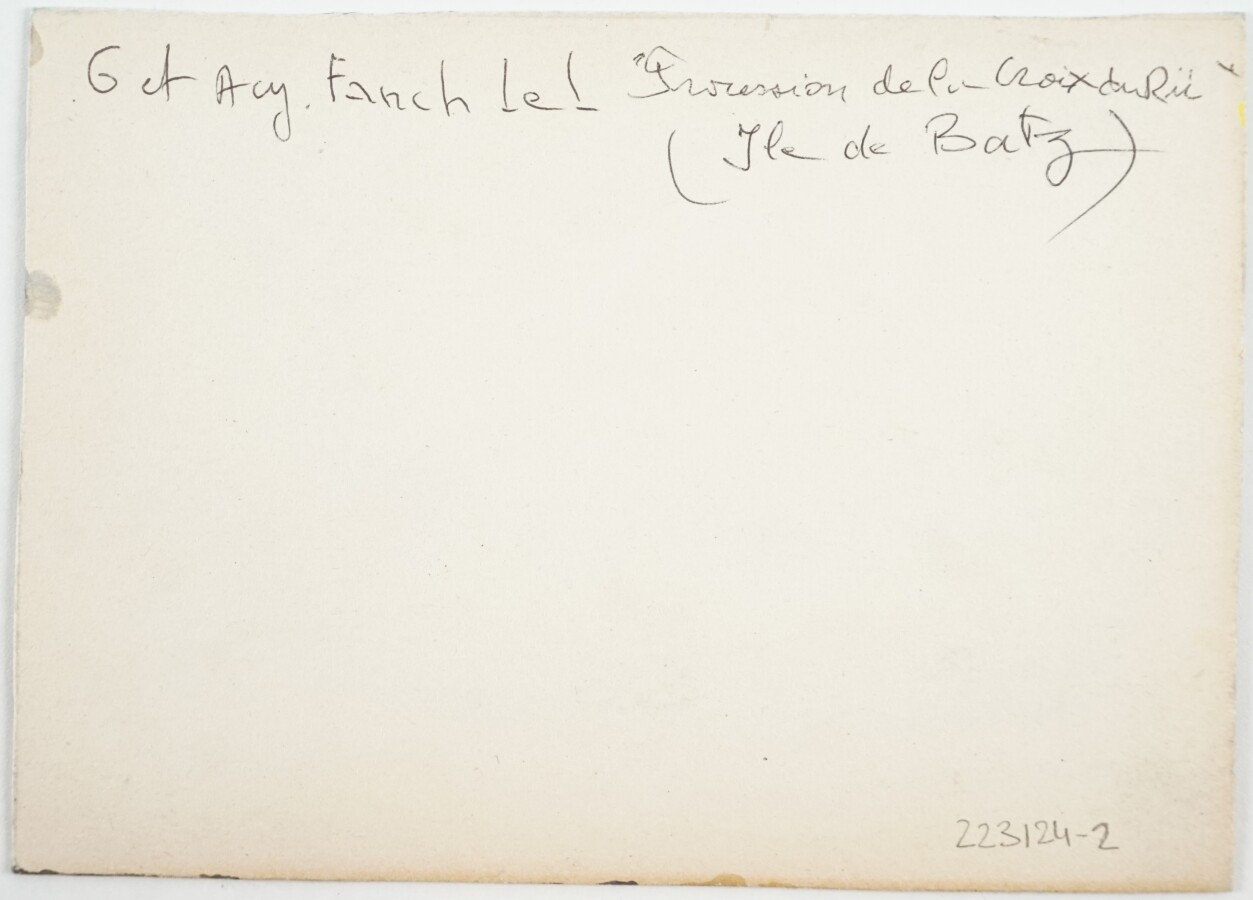 G et Acy. Fanch Lel "Procession de la Croix du Rii"
(Ile de Batz)
223124-2